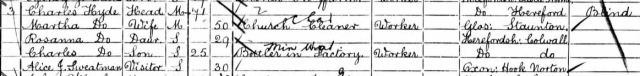 3 Charles Hyde Head M 71 Do Hereford Blind
Martha Do Wife M 50 Church Cleaner Worker Glos: Staunton
Rosanna Do Daur. S 29 Herefordsh: Colwall
Charles Do Son S 25 Butler in Factory Worker Do do
Alice J. Sweatman Visitor S 30 Oxon: Hook Norton